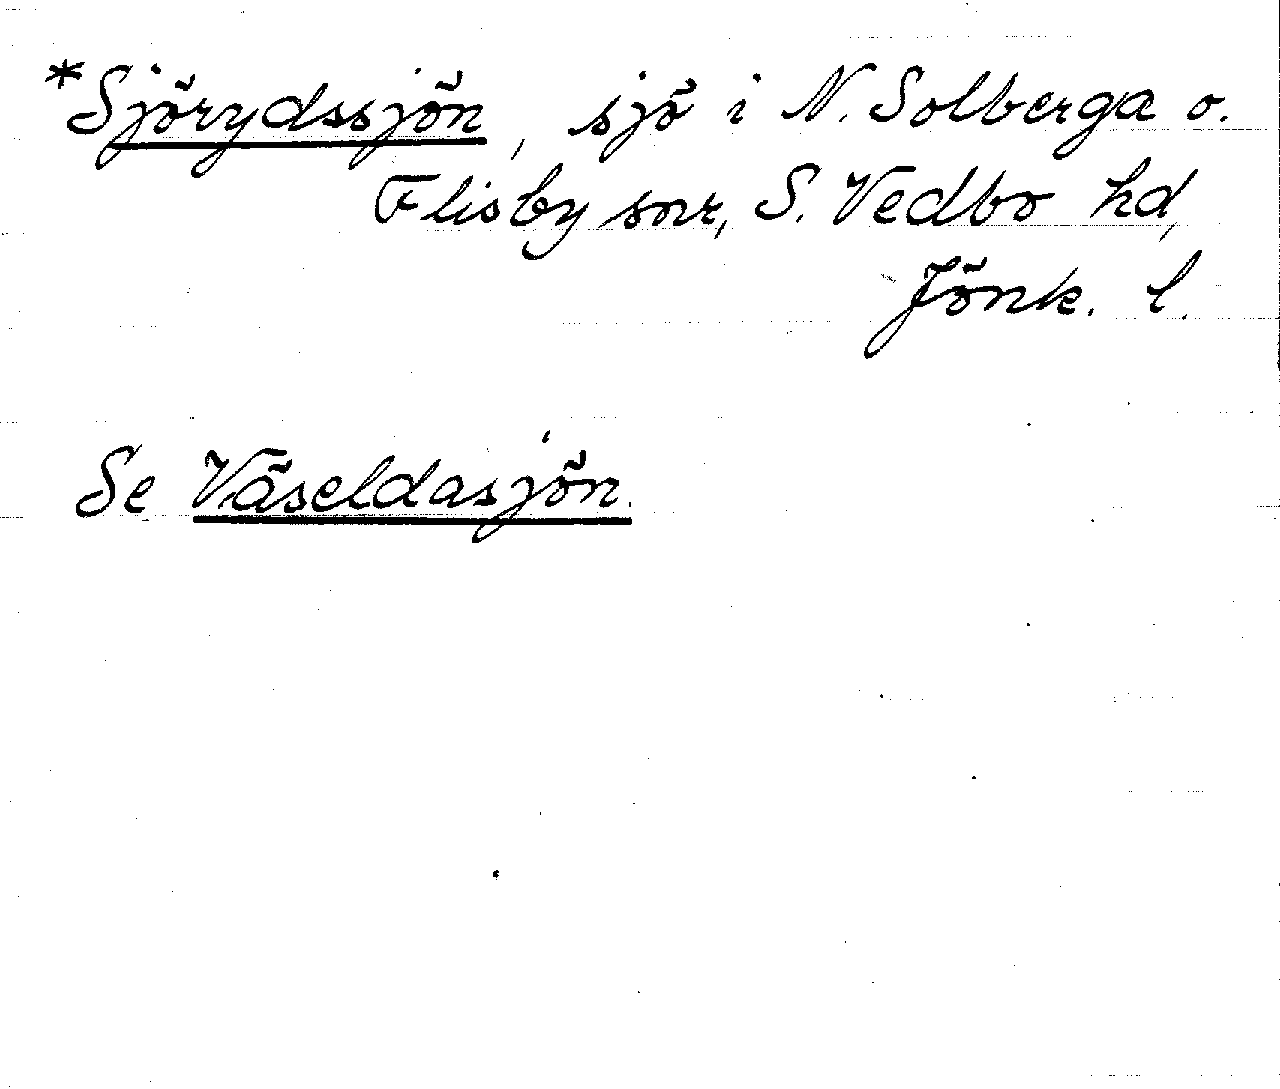 *Sjörydssjön, sjö i N. Solberga o.
Flisby snr, S. Vedbo hd,
Jönk. l.
Se Väseldasjön.